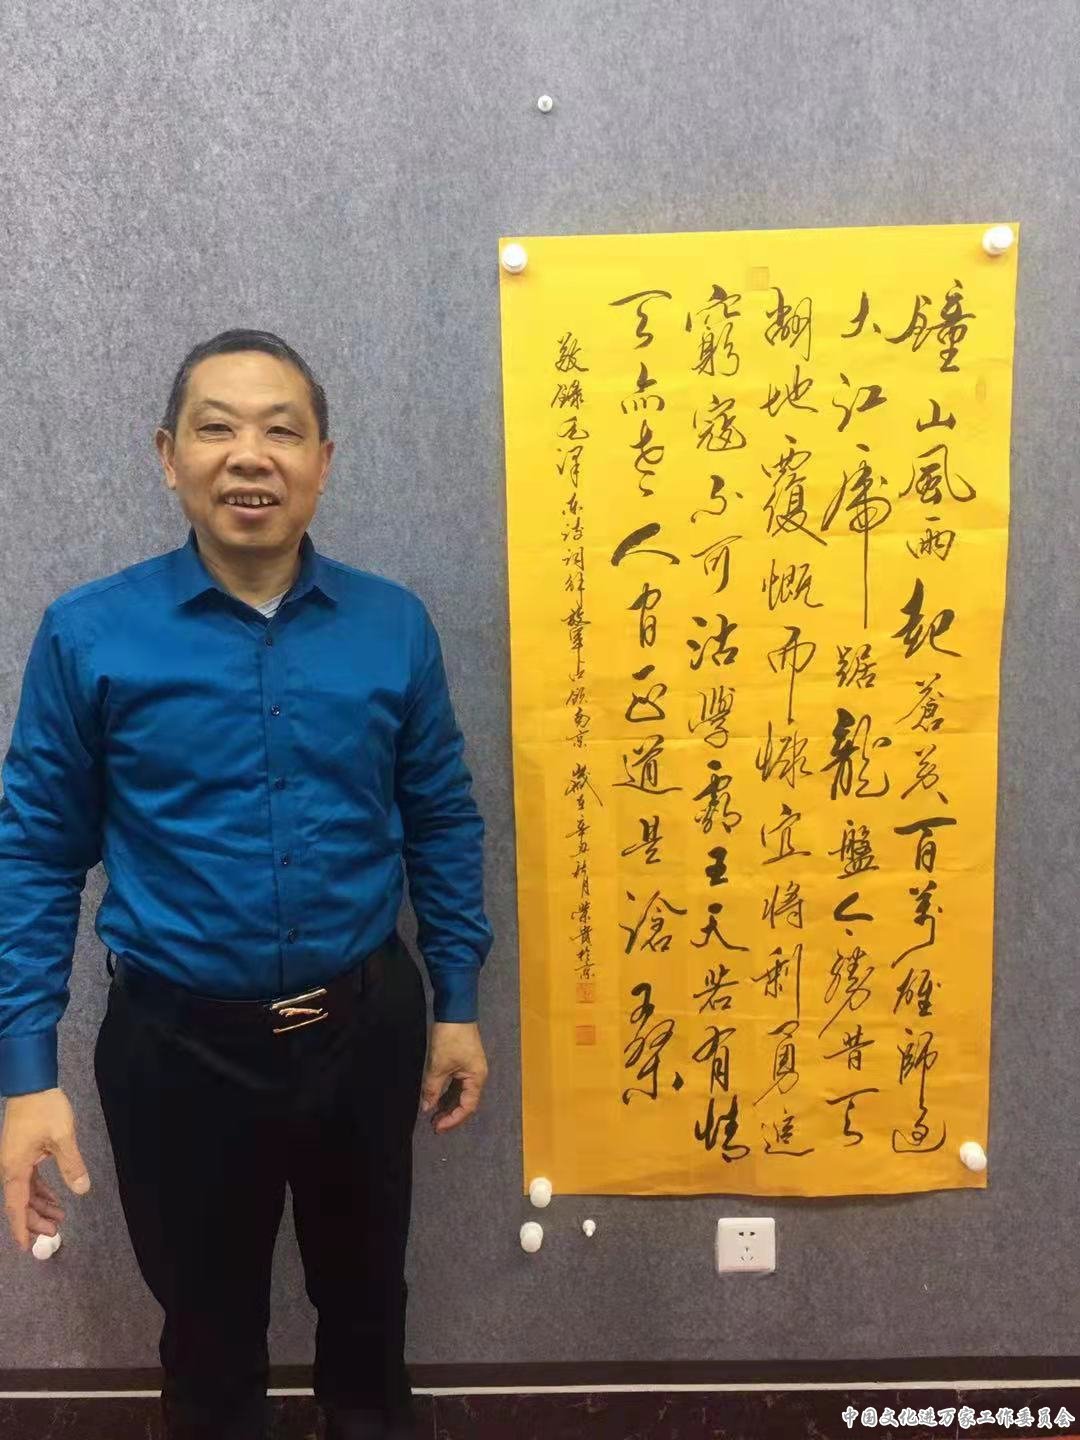 鐘山風雨起蒼黃百萬雄師過
大江虎踞龍盤今勝昔天
翻地覆慨而慷宜將剩勇追
窮寇不可沽學霸王天若有情
天亦老人間正道是滄桑
敬錄毛澤東詩詞解放軍占領南京 歲在辛丑秋月榮貴於京
中国文化进万家工作委员会